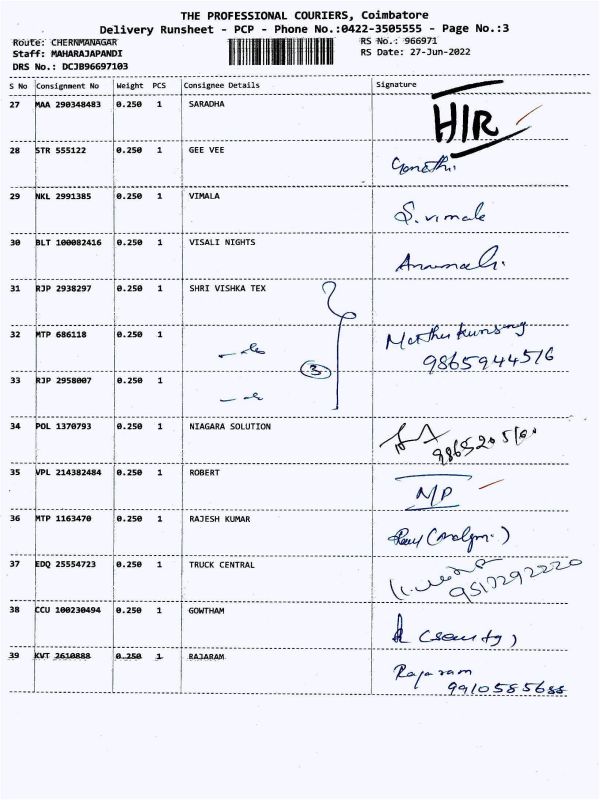 THE PROFESSIONAL COURIERS, Coimbatore
Delivery Runsheet - PCP - Phone No.:0422-3505555 - Page No.:3
Route: CHERNMANAGAR RS No.: 966971
Staff: MAHARAJAPANDI RS Date: 27-Jun-2022
DRS No.: DCJB96697103
S No Consignment No Weight PCS Consignee Details Signature
27 MAA 290348483 0.250 1 SARADHA HIR
28 STR 555122 0.250 1 GEE VEE
29 NKL 2991385 0.250 1 VIMALA S. vimala
30 BLT 100082416 0.250 1 VISALI NIGHTS
31 RJP 2938297 0.250 1 SHRI VISHKA TEX
32 MTP 686118 0.250 1
9865944516
33 RJP 2958007 0.250 1 3
34 POL 1370793 0.250 1 NIAGARA SOLUTION
35 VPL 214382484 0.250 1 ROBERT M/P
36 MTP 1163470 0.250 1 RAJESH KUMAR
37 EDQ 25554723 0.250 1 TRUCK CENTRAL 9517292220
38 CCU 100230494 0.250 1 GOWTHAM
39 KVT 2610888 0.250 1 RAJARAM Rajaram
9910585688